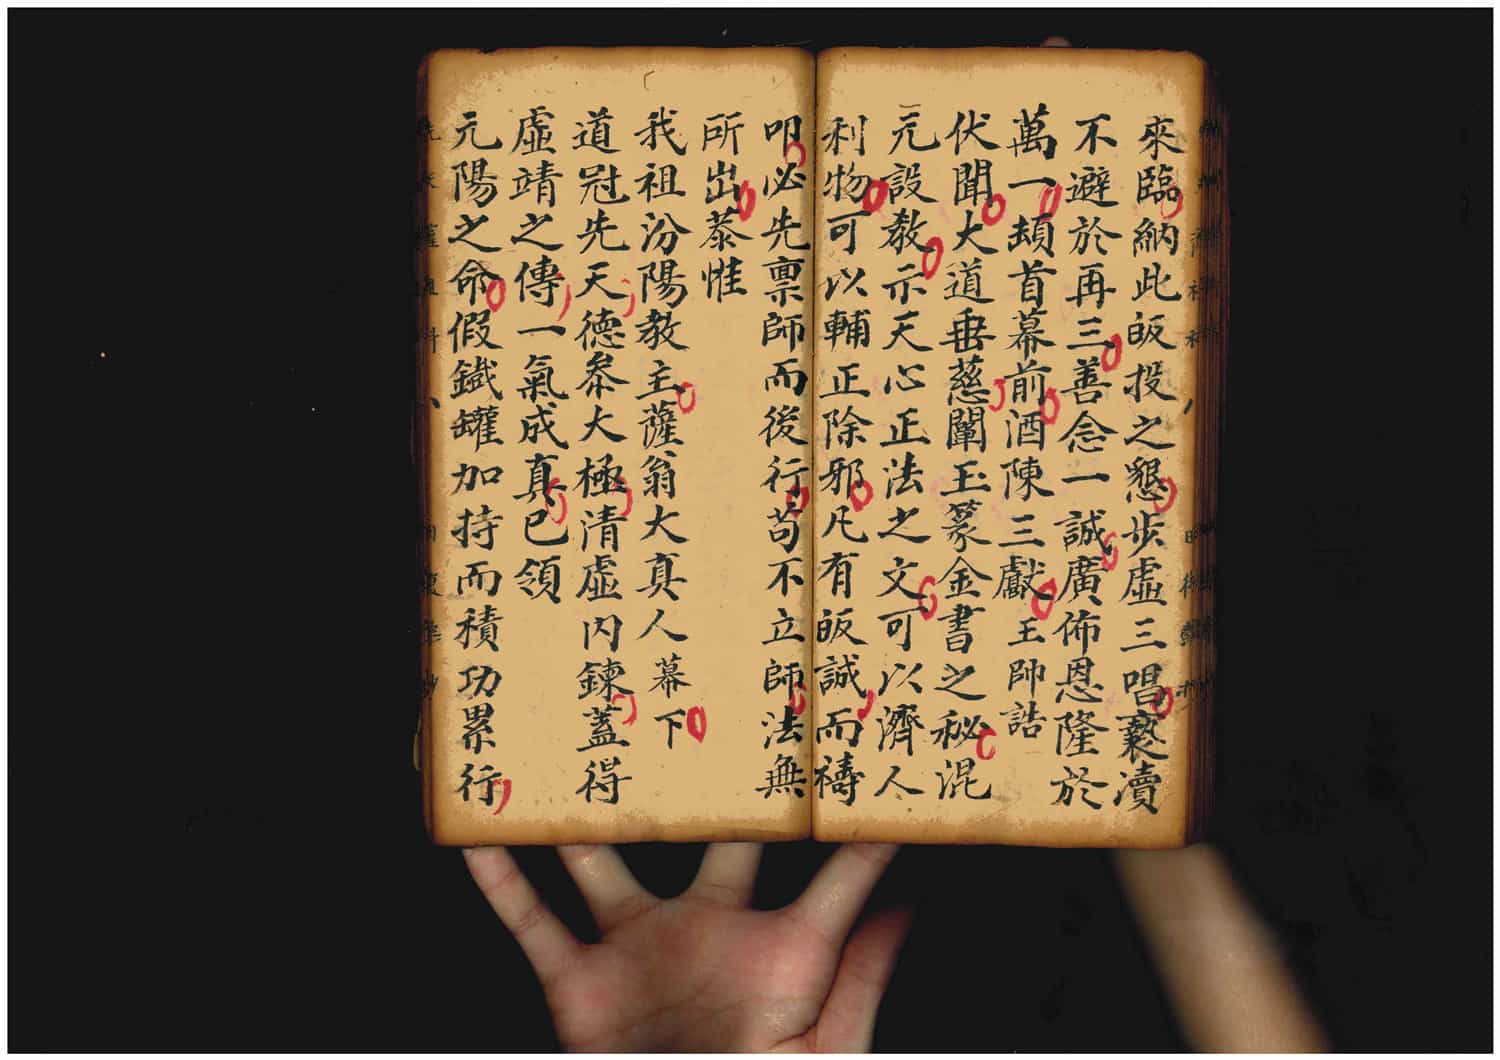 來臨納此皈投之懇步虛三唱褻瀆
不避於再三善念一誠廣佈恩隆於
萬一頓首幕前酒陳三獻王帥誥
伏聞大道垂慈闡玉篆金書之秘混
元設教示天心正法之文可以濟人
利物可以輔正除邪凡有皈誠而禱
叩必先禀師而後行苟不立師法無
所出恭惟
我祖汾陽教主薩翁大真人幕下
道冠先天德叅大極清虛內鍊蓋得
虛靖之傳一氣成真已領
元陽之命假鐵罐加持而積功累行